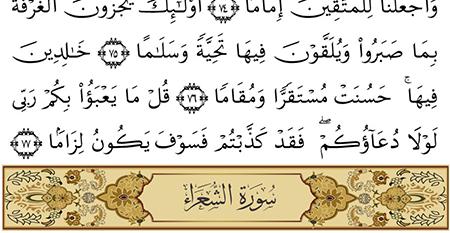 وَٱجْعَلْنَا لِلْمُتَّقِينَ إِمَامًا ۝٧٤ أُو۟لَـٰٓئِكَ يُجْزَوْنَ ٱلْغُرْفَةَ
بِمَا صَبَرُوا۟ وَيُلَقَّوْنَ فِيهَا تَحِيَّةً وَسَلَـٰمًا ۝٧٥ خَـٰلِدِينَ
فِيهَا ۚ حَسُنَتْ مُسْتَقَرًّا وَمُقَامًا ۝٧٦ قُلْ مَا يَعْبَؤُا۟ بِكُمْ رَبِّى
لَوْلَا دُعَآؤُكُمْ ۖ فَقَدْ كَذَّبْتُمْ فَسَوْفَ يَكُونُ لِزَامًۢا ۝٧٧
سُورَةُ الشُّعَرَاءِ